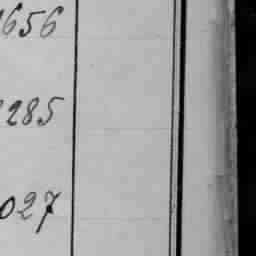 656
285
027